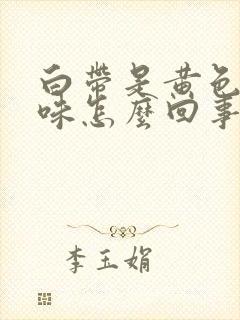 白帶是黃色
味怎麼回事
李玉娟